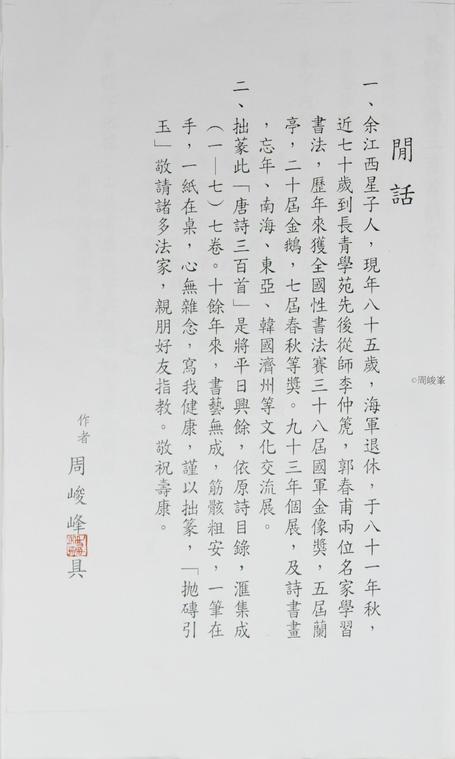 閒話
一、余江西星子人，現年八十五歲，海軍退休，于八十一年秋，
近七十歲到長青學苑先後從師李仲篪，郭春甫兩位名家學習
書法，歷年來獲全國性書法賽三十八屆國軍金像獎，五屆蘭
亭，二十屆金鵝，七屆春秋等獎。九十三年個展，及詩書畫
，忘年、南海、東亞、韓國濟州等文化交流展。
二、拙篆此「唐詩三百首」是將平日興餘，依原詩目錄，滙集成
（一—七）七卷。十餘年來，書藝無成，筋骸粗安，一筆在
手，一紙在桌，心無雜念，寫我健康，謹以拙篆，「拋磚引
玉」敬請諸多法家，親朋好友指教。敬祝壽康。
作者 周峻峰 具
©周峻峯